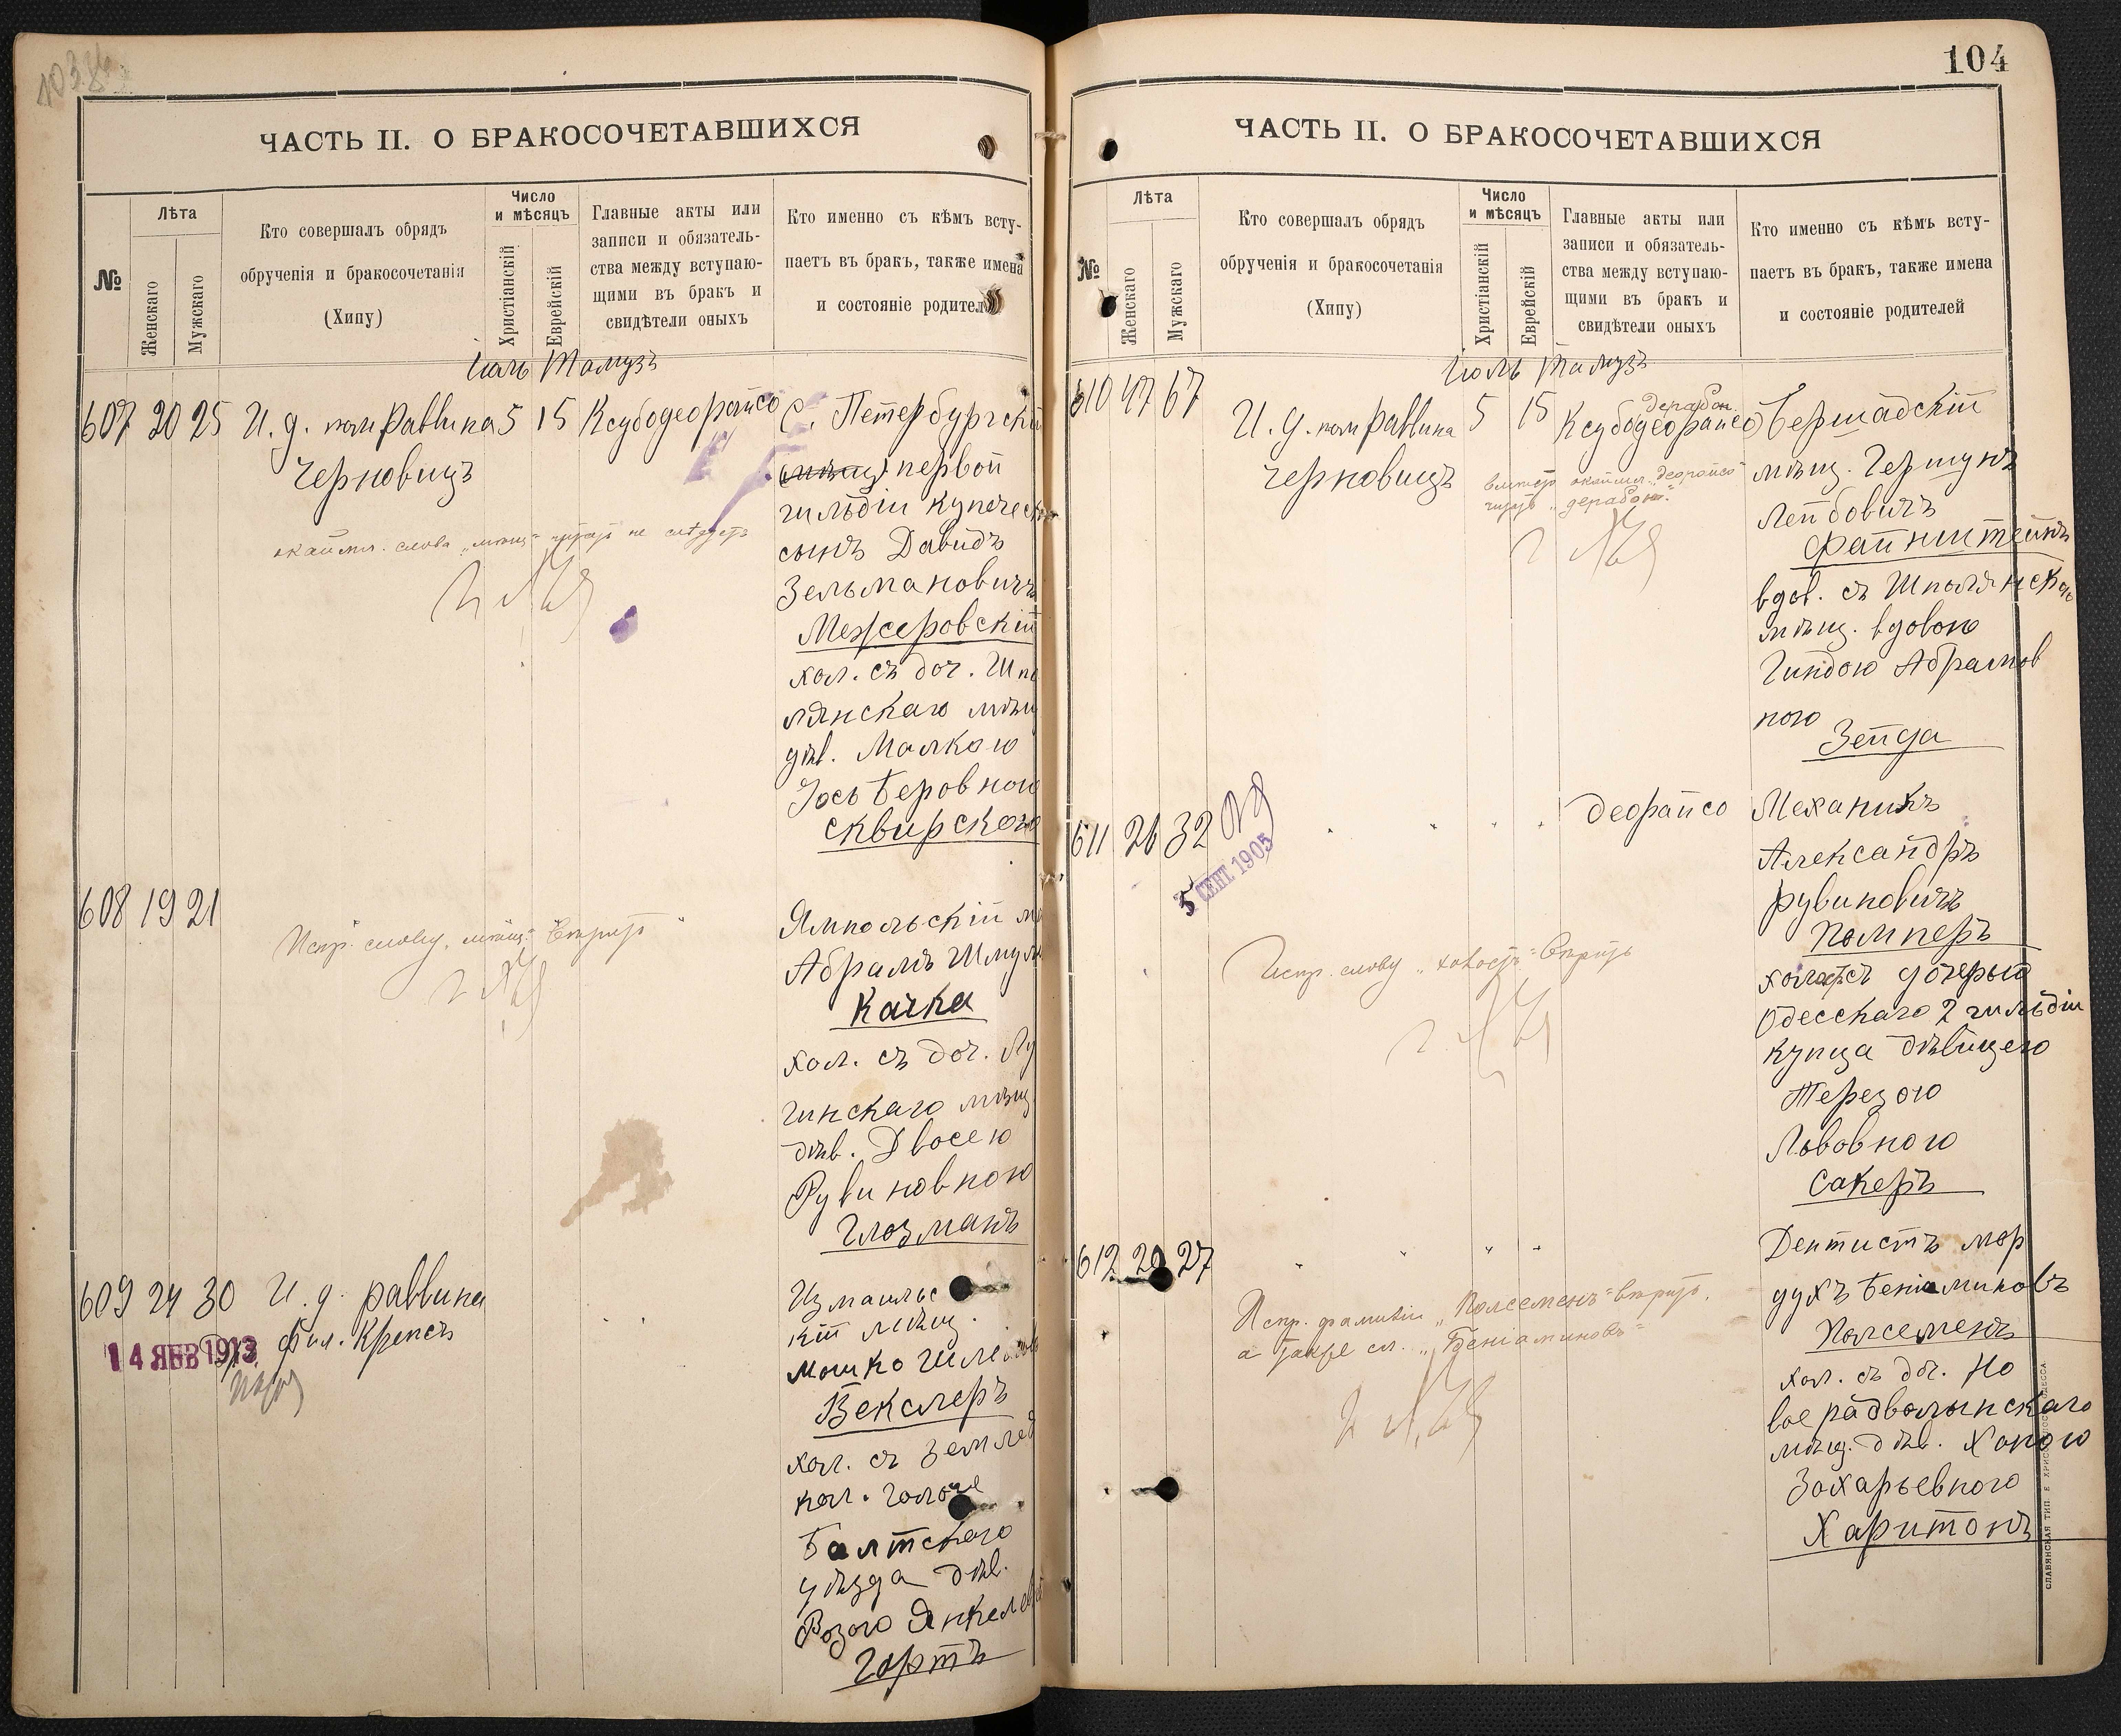 103
ЧАСТЬ II. О БРАКОСОЧЕТАВШИХСЯ
№
Лѣта
Женскаго
Мужскаго
Кто совершалъ обрядъ
обрученія и бракосочетанія
(Хипу)
Число
и мѣсяцъ
Христіанскій
Еврейскій
Главные акты или
записи и обязатель-
ства между вступаю-
щими въ бракъ и
свидѣтели оныхъ
Кто именно съ кѣмъ всту-
паетъ въ бракъ, также имена
и состояніе родител
Іюль Тамузъ
607 20 25 И. д. пом раввина 5 15 Ксубодеорайсо
Черновицъ
С. Петербургскій
(мѣщ) первой
гильдіи купечес
сынъ Давидъ
Зельмановичъ
Межеровскій
хол. съ доч. Шпо
лянскаго мѣщ
дѣв. Малкою
Іось Беровною
Сквирскою
окаймл. слова „мѣщ" читать не слѣдуетъ
608 19 21
Испр. слову „мѣщ." вѣрить
Ямпольскій м
Абрамъ Шмул
Качка
хол. съ доч. Лу
гинскаго мѣщ
дѣв. Двосею
Рувиновною
Глозманъ
609 24 30 И. д. раввина
Фил. Крепсъ
14 ЯНВ 1913
Измаильс
кій мѣщ.
Мошко Шлем
Векслеръ
хол. съ землед
кол. Голо
Балтскаго
уѣзда дѣв.
Розою Янкел
Гортъ
104
ЧАСТЬ II. О БРАКОСОЧЕТАВШИХСЯ
№
Лѣта
Женскаго
Мужскаго
Кто совершалъ обрядъ
обрученія и бракосочетанія
(Хипу)
Число
и мѣсяцъ
Христіанскій
Еврейскій
Главные акты или
записи и обязатель-
ства между вступаю-
щими въ бракъ и
свидѣтели оныхъ
Кто именно съ кѣмъ всту-
паетъ въ бракъ, также имена
и состояніе родителей
Іюль Тамузъ
610 47 67 И. д. пом раввина 5 15 Ксубодеорайсо
дерабон.
Черновицъ
вмѣсто окаймл. „деорайсо"
читать „дерабон."
Бершадскій
мѣщ. Гершунъ
Лейбовичъ
Файнштейнъ
вдов. съ Шполянскою
мѣщ. вдовою
Гиндою Абрамов
ною
Зейда
611 26 32 деорайсо
5 СЕНТ. 1905
Испр. слову „холост." вѣрить
Механикъ
Александръ
Рувиновичъ
Помперъ
холост съ дочерью
Одесскаго 2 гильдіи
купца дѣвицею
Терезою
Львовною
Сакеръ
612 20 27
Испр. фамиліи „Полсеменъ" вѣрить,
а также сл. „Беніаминовъ"
Дентистъ Мор
духъ Беніаминовъ
Полсеменъ
хол. съ доч. Но
вое радволынскаго
мѣщ. дѣв. Ханою
Зохарьевною
Харитонъ
СЛАВЯНСКАЯ ТИП. Е ХРИСОГЕЛОСЪ ОДЕССА